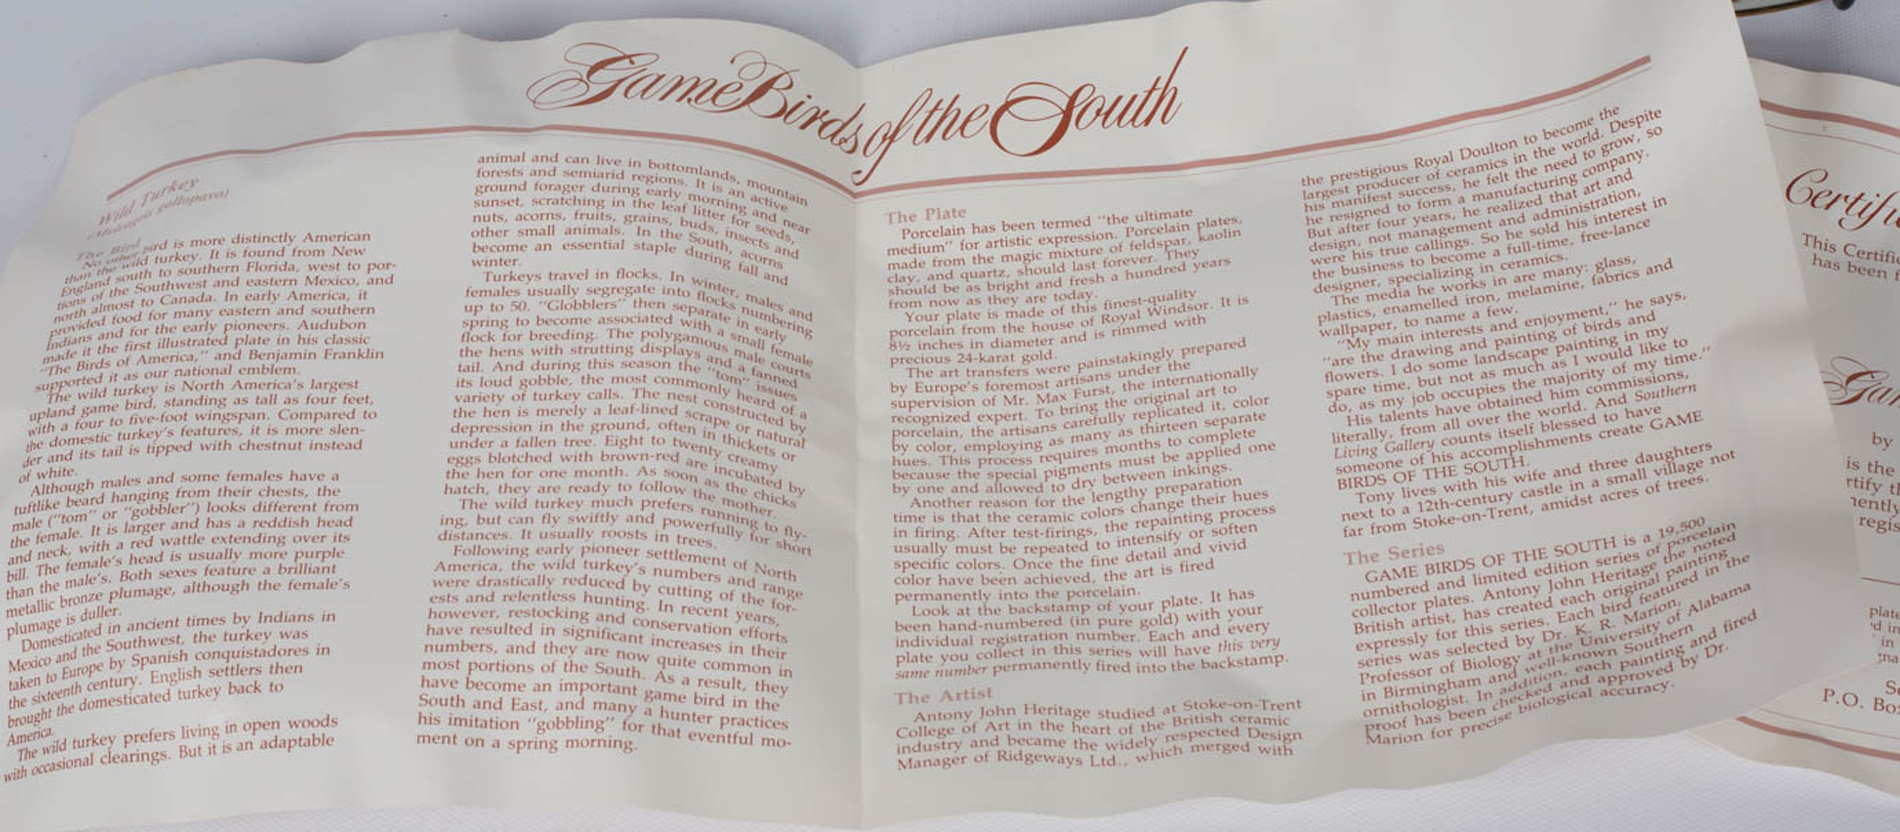 Game Birds of the South
Wild Turkey
(Meleagris gallopavo)
The Bird
No other bird is more distinctly American
than the wild turkey. It is found from New
England south to southern Florida, west to por-
tions of the Southwest and eastern Mexico, and
north almost to Canada. In early America, it
provided food for many eastern and southern
Indians and for the early pioneers. Audubon
made it the first illustrated plate in his classic
"The Birds of America," and Benjamin Franklin
supported it as our national emblem.
The wild turkey is North America's largest
upland game bird, standing as tall as four feet,
with a four to five-foot wingspan. Compared to
the domestic turkey's features, it is more slen-
der and its tail is tipped with chestnut instead
of white.
Although males and some females have a
tuftlike beard hanging from their chests, the
male ("tom" or "gobbler") looks different from
the female. It is larger and has a reddish head
and neck, with a red wattle extending over its
bill. The female's head is usually more purple
than the male's. Both sexes feature a brilliant
metallic bronze plumage, although the female's
plumage is duller.
Domesticated in ancient times by Indians in
Mexico and the Southwest, the turkey was
taken to Europe by Spanish conquistadores in
the sixteenth century. English settlers then
brought the domesticated turkey back to
America.
The wild turkey prefers living in open woods
with occasional clearings. But it is an adaptable
animal and can live in bottomlands, mountain
forests and semiarid regions. It is an active
ground forager during early morning and near
sunset, scratching in the leaf litter for seeds,
nuts, acorns, fruits, grains, buds, insects and
other small animals. In the South, acorns
become an essential staple during fall and
winter.
Turkeys travel in flocks. In winter, males and
females usually segregate into flocks numbering
up to 50. "Globblers" then separate in early
spring to become associated with a small female
flock for breeding. The polygamous male courts
the hens with strutting displays and a fanned
tail. And during this season the "tom" issues
its loud gobble, the most commonly heard of a
variety of turkey calls. The nest constructed by
the hen is merely a leaf-lined scrape or natural
depression in the ground, often in thickets or
under a fallen tree. Eight to twenty creamy
eggs blotched with brown-red are incubated by
the hen for one month. As soon as the chicks
hatch, they are ready to follow the mother.
The wild turkey much prefers running to fly-
ing, but can fly swiftly and powerfully for short
distances. It usually roosts in trees.
Following early pioneer settlement of North
America, the wild turkey's numbers and range
were drastically reduced by cutting of the for-
ests and relentless hunting. In recent years,
however, restocking and conservation efforts
have resulted in significant increases in their
numbers, and they are now quite common in
most portions of the South. As a result, they
have become an important game bird in the
South and East, and many a hunter practices
his imitation "gobbling" for that eventful mo-
ment on a spring morning.
The Plate
Porcelain has been termed "the ultimate
medium" for artistic expression. Porcelain plates,
made from the magic mixture of feldspar, kaolin
clay, and quartz, should last forever. They
should be as bright and fresh a hundred years
from now as they are today.
Your plate is made of this finest-quality
porcelain from the house of Royal Windsor. It is
8½ inches in diameter and is rimmed with
precious 24-karat gold.
The art transfers were painstakingly prepared
by Europe's foremost artisans under the
supervision of Mr. Max Furst, the internationally
recognized expert. To bring the original art to
porcelain, the artisans carefully replicated it, color
by color, employing as many as thirteen separate
hues. This process requires months to complete
because the special pigments must be applied one
by one and allowed to dry between inkings.
Another reason for the lengthy preparation
time is that the ceramic colors change their hues
in firing. After test-firings, the repainting process
usually must be repeated to intensify or soften
specific colors. Once the fine detail and vivid
color have been achieved, the art is fired
permanently into the porcelain.
Look at the backstamp of your plate. It has
been hand-numbered (in pure gold) with your
individual registration number. Each and every
plate you collect in this series will have this very
same number permanently fired into the backstamp.
The Artist
Antony John Heritage studied at Stoke-on-Trent
College of Art in the heart of the British ceramic
industry and became the widely respected Design
Manager of Ridgeways Ltd., which merged with
the prestigious Royal Doulton to become the
largest producer of ceramics in the world. Despite
his manifest success, he felt the need to grow, so
he resigned to form a manufacturing company.
But after four years, he realized that art and
design, not management and administration,
were his true callings. So he sold his interest in
the business to become a full-time, free-lance
designer, specializing in ceramics.
The media he works in are many: glass,
plastics, enamelled iron, melamine, fabrics and
wallpaper, to name a few.
"My main interests and enjoyment," he says,
"are the drawing and painting of birds and
flowers. I do some landscape painting in my
spare time, but not as much as I would like to
do, as my job occupies the majority of my time."
His talents have obtained him commissions,
literally, from all over the world. And Southern
Living Gallery counts itself blessed to have
someone of his accomplishments create GAME
BIRDS OF THE SOUTH.
Tony lives with his wife and three daughters
next to a 12th-century castle in a small village not
far from Stoke-on-Trent, amidst acres of trees.
The Series
GAME BIRDS OF THE SOUTH is a 19,500
numbered and limited edition series of porcelain
collector plates. Antony John Heritage the noted
British artist, has created each original painting
expressly for this series. Each bird featured in the
series was selected by Dr. K. R. Marion,
Professor of Biology at the University of Alabama
in Birmingham and well-known Southern
ornithologist. In addition, each painting and fired
proof has been checked and approved by Dr.
Marion for precise biological accuracy.
This
has been
by
is the
P.O.